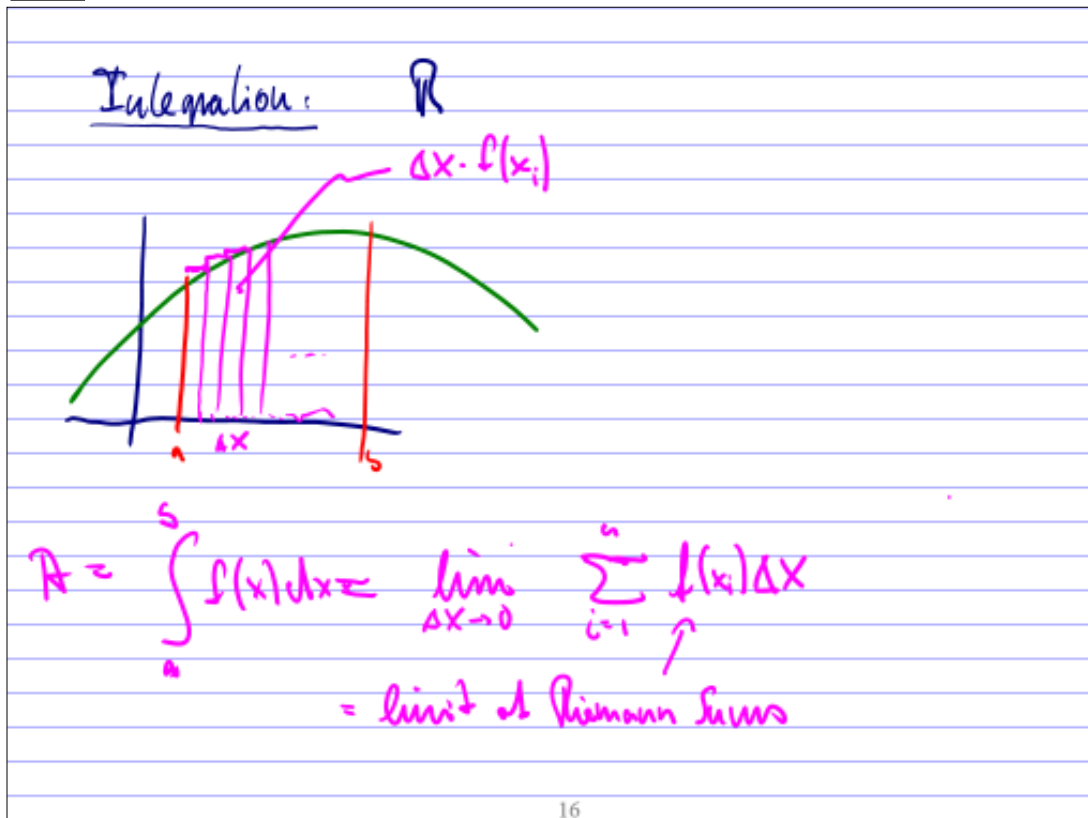 Integration: ℝ
Δx · f(x_i)
...
Δx
a b
A = ∫_a^b f(x) dx = lim_{Δx→0} ∑_{i=1}^n f(x_i) Δx
= limit of Riemann Sums
16